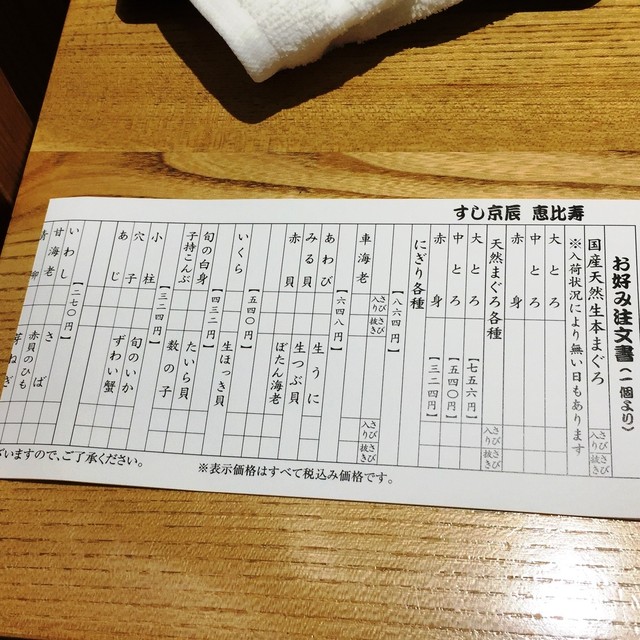 すし京辰 恵比寿
お好み注文書(一個より)
国産天然生本まぐろ
さび入り
さび抜き
※入荷状況により無い日もあります
大とろ
中とろ
赤身
天然まぐろ各種
さび入り
さび抜き
大とろ【七五六円】
中とろ【五四〇円】
赤身【三二四円】
にぎり各種
【八六四円】
さび入り
さび抜き
さび入り
さび抜き
車海老
【六四八円】
あわび
生うに
みる貝
生つぶ貝
赤貝
ぼたん海老
【五四〇円】
いくら
生ほっき貝
【四三二円】
旬の白身
たいら貝
子持こんぶ
数の子
【三二四円】
小柱
旬のいか
穴子
ずわい蟹
あじ
【二七〇円】
いわし
さば
甘海老
赤貝のひも
青柳
芽ねぎ
※表示価格はすべて税込み価格です。
ざいますので、ご了承ください。